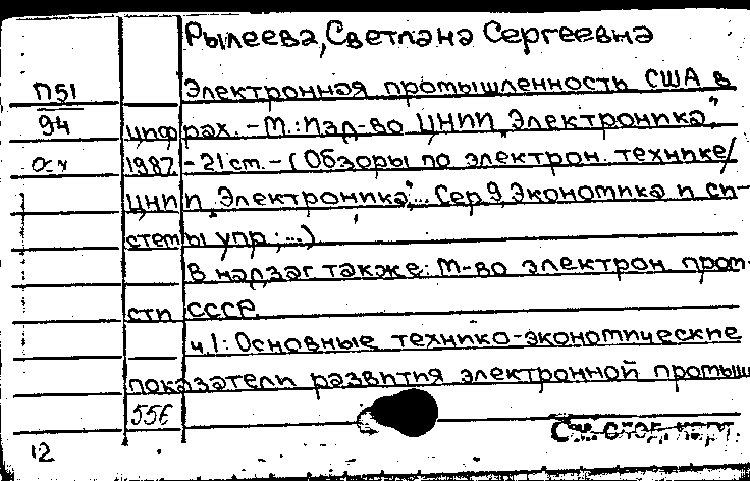 Рылеева, Светлана Сергеевна
П51 Электронная промышленность США в
94 цифрах. – М.: Изд-во ЦНИИ „Электроника",
1987. – 21 ст. – (Обзоры по электрон. технике/
ЦНИИ „Электроника"... Сер 9, Экономика и си-
стемы упр; ...)
В надзаг также: М-во электрон пром-
сти СССР.
ч.1: Основные технико-экономические
показатели развития электронной промыш
556
См. след. карт.
12